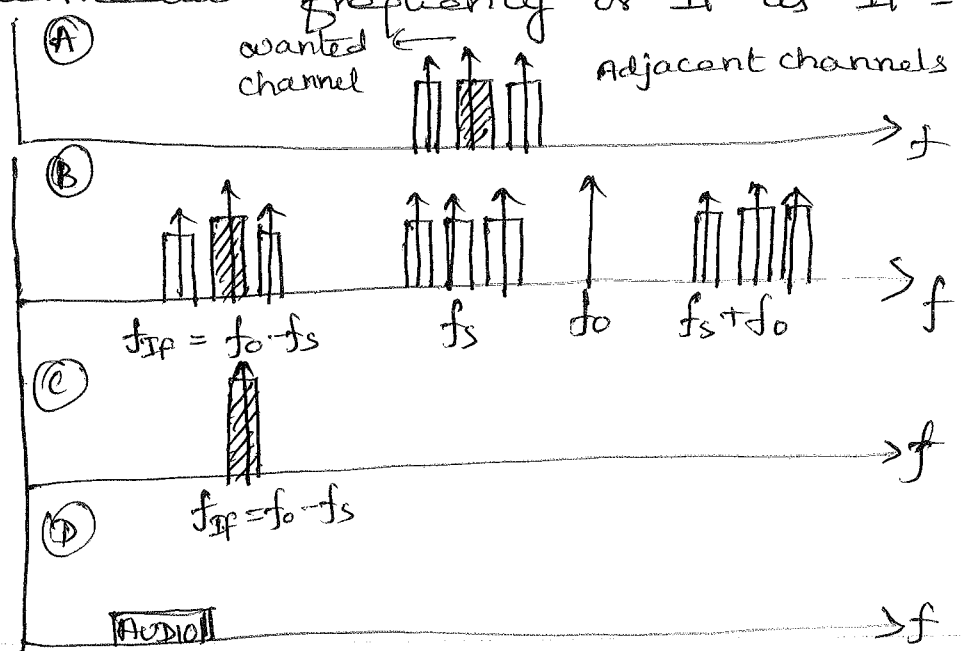 frequency or IF as IF =
A
wanted ← channel
Adjacent channels
f
B
fIF = fo-fs
fs
fo
fs+fo
f
C
f
fIF = fo-fs
D
AUDIO
f